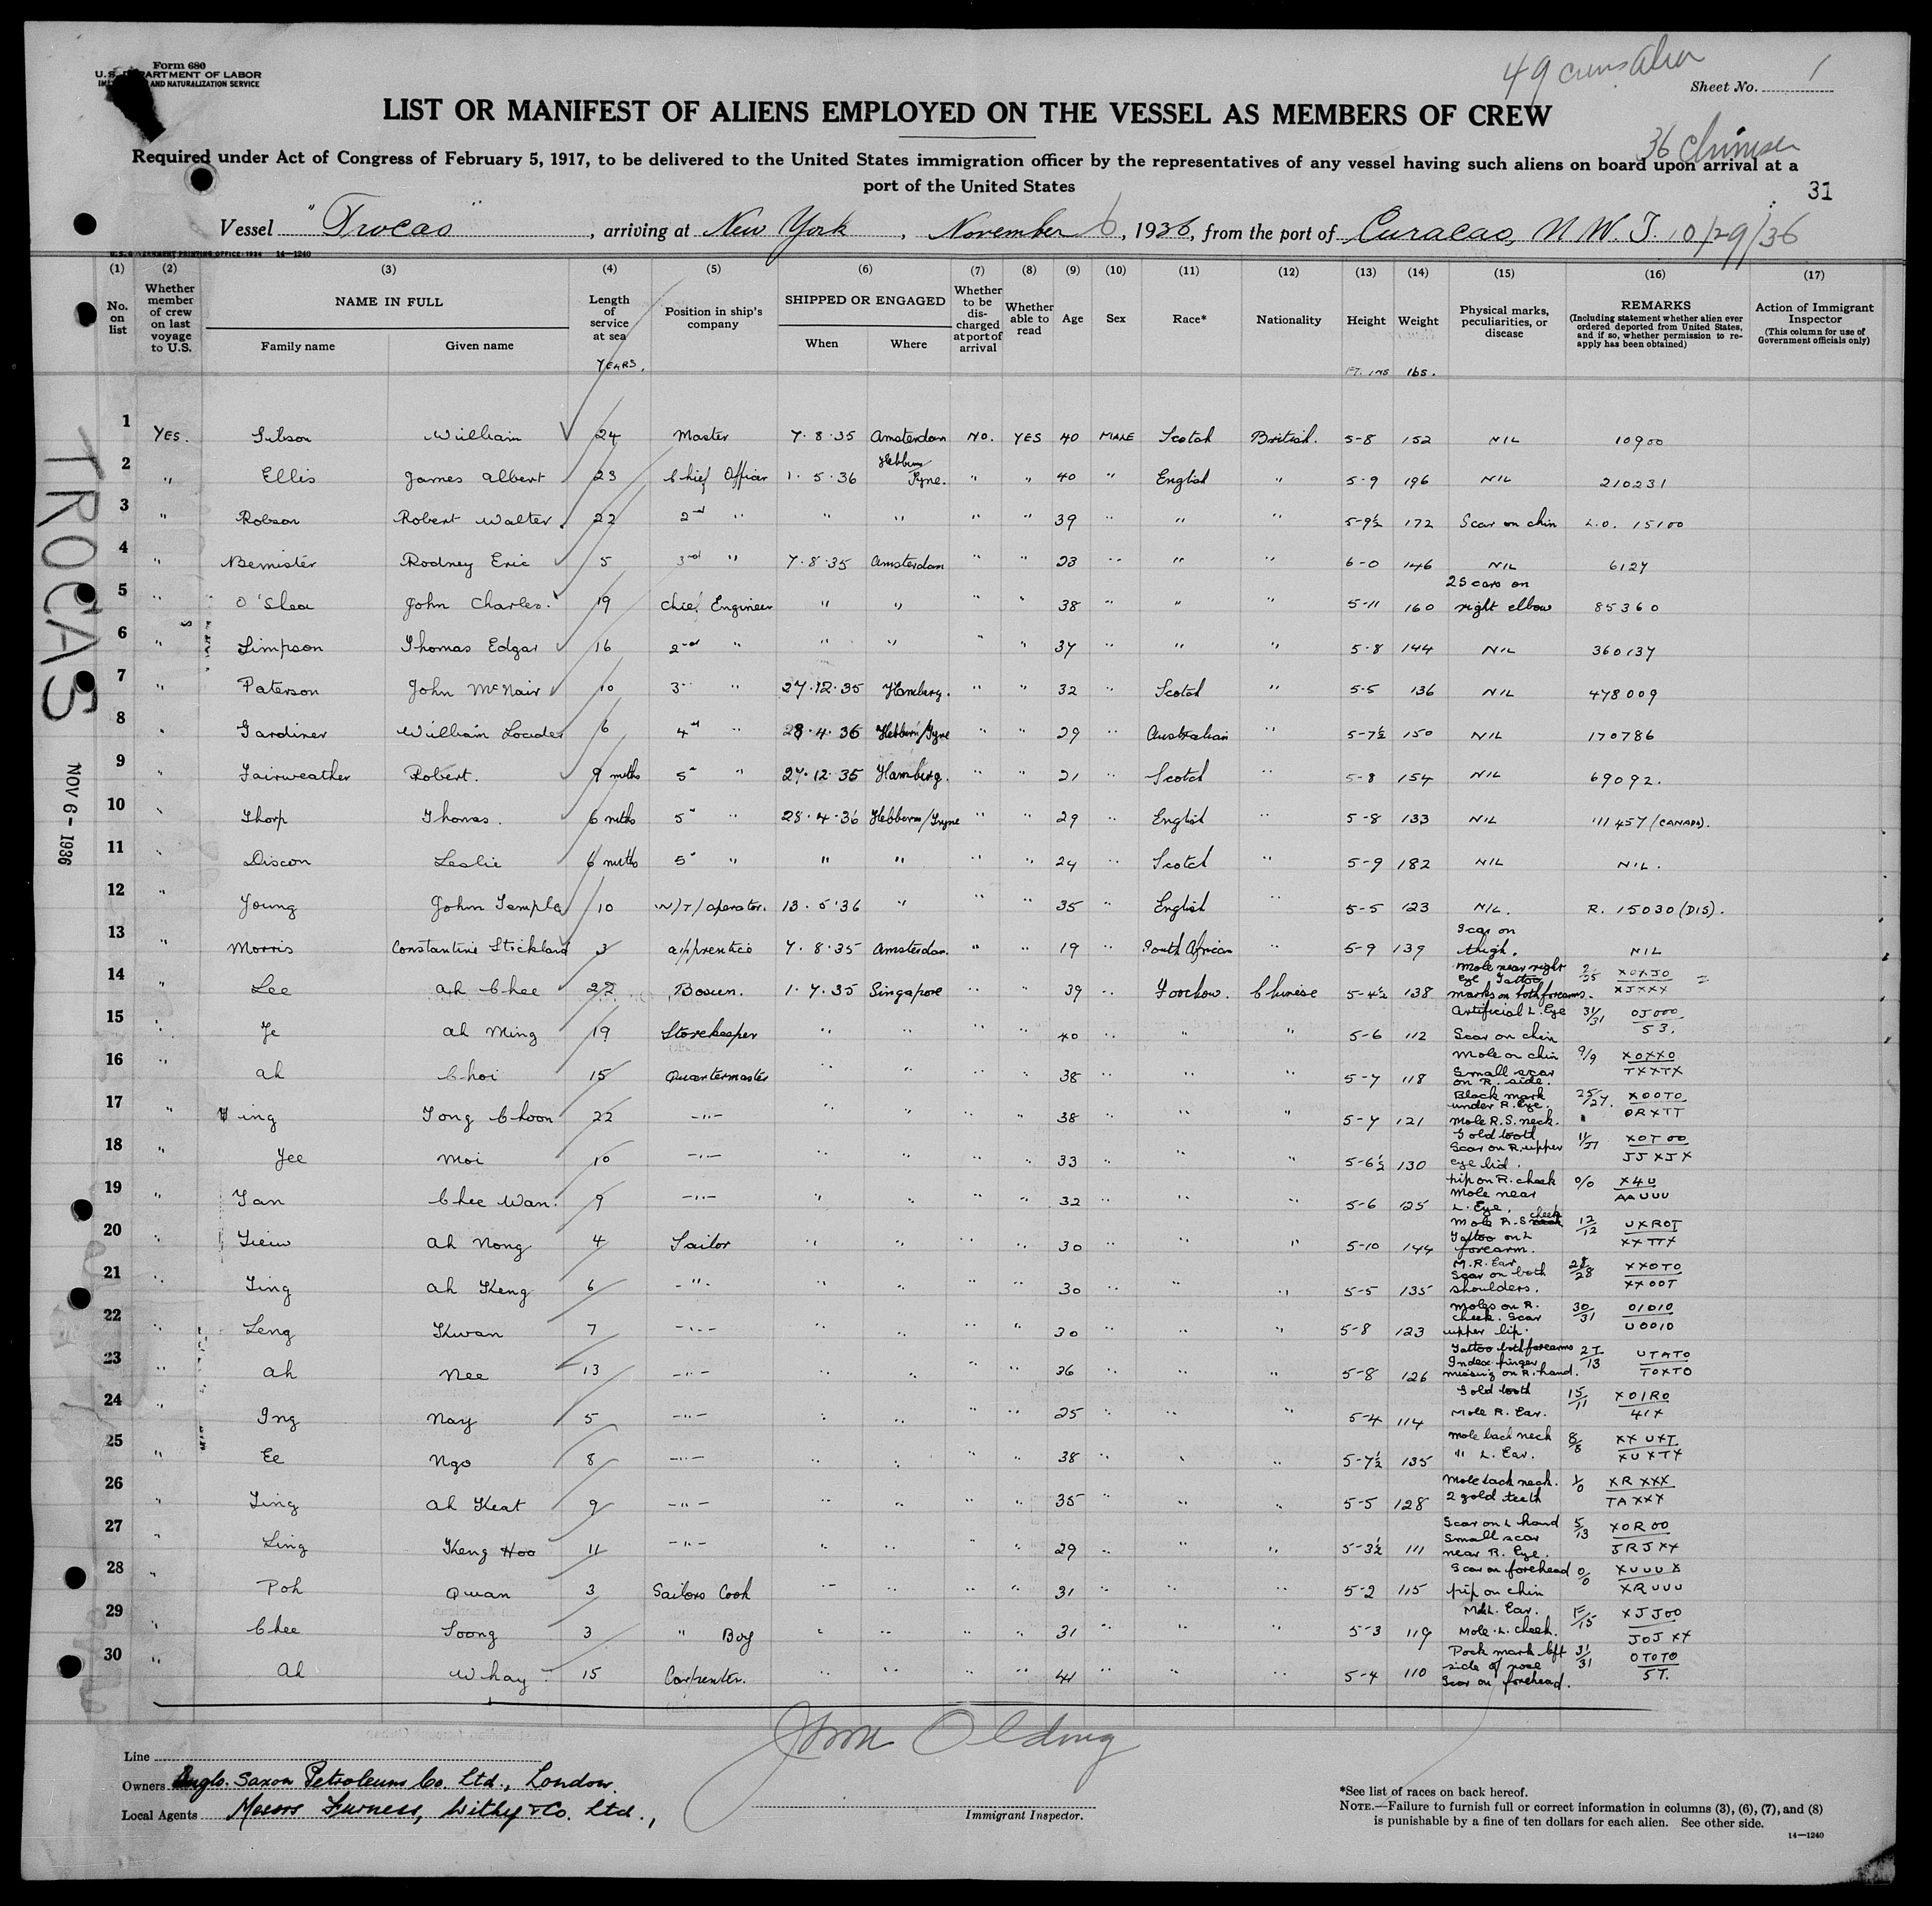 Form 680
U. S. DEPARTMENT OF LABOR
IMMIGRATION AND NATURALIZATION SERVICE
49 crews alien
Sheet No. 1
LIST OR MANIFEST OF ALIENS EMPLOYED ON THE VESSEL AS MEMBERS OF CREW
36 Chinese
Required under Act of Congress of February 5, 1917, to be delivered to the United States immigration officer by the representatives of any vessel having such aliens on board upon arrival at a
port of the United States
31
Vessel "Trocas", arriving at New York, November 6, 1936, from the port of Curacao, N.W.I. 10/29/36
U. S. GOVERNMENT PRINTING OFFICE: 1934 14—1240
(1) (2) (3) (4) (5) (6) (7) (8) (9) (10) (11) (12) (13) (14) (15) (16) (17)
No. on list
Whether member of crew on last voyage to U.S.
NAME IN FULL
Family name Given name
Length of service at sea
YEARS.
Position in ship's company
SHIPPED OR ENGAGED
When Where
Whether to be discharged at port of arrival
Whether able to read
Age
Sex
Race*
Nationality
Height
FT. INS
Weight
lbs.
Physical marks, peculiarities, or disease
REMARKS
(Including statement whether alien ever ordered deported from United States, and if so, whether permission to reapply has been obtained)
Action of Immigrant Inspector
(This column for use of Government officials only)
1 YES. Gibson William 24 Master 7.8.35 Amsterdam NO. YES 40 MALE Scotch British. 5-8 152 NIL 10900
2 " Ellis James Albert 23 Chief Officer 1.5.36 Hebburn/Tyne. " " 40 " English " 5-9 196 NIL 210231
3 " Robson Robert Walter. 22 2nd " " " " " 39 " " " 5-9½ 172 Scar on chin L.O. 15100
4 " Bemister Rodney Eric 5 3rd " 7.8.35 Amsterdam " " 23 " " " 6-0 146 NIL 6127
5 " O'Shea John Charles. 19 Chief Engineer " " " " 38 " " " 5-11 160 2 Scars on right elbow 85360
6 " Simpson Thomas Edgar 16 2nd " " " " " 37 " " " 5-8 144 NIL 360137
7 " Paterson John McNair 10 3" " 27.12.35 Hamburg. " " 32 " Scotch " 5-5 136 NIL 478009
8 " Gardiner William Louden 6 4th " 28.4.36 Hebburn/Tyne " " 29 " Australian " 5-7½ 150 NIL 170786
9 " Fairweather Robert. 9 mths 5" " 27.12.35 Hamburg. " " 21 " Scotch " 5-8 154 NIL 69092.
10 " Thorp Thomas. 6 mths 5" " 28.4.36 Hebburn/Tyne " " 29 " English " 5-8 133 NIL 111457 (CANADA).
11 " Discon Leslie 6 mths 5" " " " " " 24 " Scotch " 5-9 182 NIL NIL.
12 " Young John Temple 10 W/T/operator. 13.5.36 " " " 35 " English " 5-5 123 NIL. R. 15030 (DIS).
13 " Morris Constantine Stickland 3 apprentice 7.8.35 Amsterdam. " " 19 " South African " 5-9 139 Scar on thigh. NIL
14 " Lee Ah Chee 22 Bosun. 1.7.35 Singapore " " 39 " Foochow. Chinese 5-4½ 138 Mole near right eye Tattoo marks on both forearms. XOXJO XJXXX
15 " Ye Ah Ming 19 Storekeeper " " " " 40 " " " 5-6 112 Artificial L. Eye Scar on chin 31/31 OJOOO 53.
16 " Ah Choi 15 Quartermaster " " " " 38 " " " 5-7 118 Mole on chin Small scar on R. side. 9/9 XOXXO TXXTX
17 " Ying Tong Choon 22 -"- " " " " 38 " " " 5-7 121 Black mark under R. Eye. Mole R.S. neck. 25/27. XOOTO ORXTT
18 " Yee Moi 10 -"- " " " " 33 " " " 5-6½ 130 Gold tooth Scar on R. upper eye lid. XOTOO JJXJX
19 " Tan Chee Wan. 9 -"- " " " " 32 " " " 5-6 125 pip on R. cheek Mole near L. Eye. 0/0 X4U AAUUU
20 " Tiew Ah Nong 4 Sailor " " " " 30 " " " 5-10 144 Mole R.S cheek Tattoo on L forearm. 12/12 UXROT XXTTX
21 " Ling Ah Keng 6 -"- " " " " 30 " " " 5-5 135 M.R. Ear Scar on both shoulders. XXOTO XXOOT
22 " Leng Kwan 7 -"- " " " " 30 " " " 5-8 123 Moles on R. cheek. Scar upper lip. 30/31 01010 U0010
23 " Ah Nee 13 -"- " " " " 36 " " " 5-8 126 Tattoo both forearms Index finger missing on R. hand. UTATO TOXTO
24 " Ing Nay 5 -"- " " " " 25 " " " 5-4 114 Gold tooth Mole R. Ear. 15/11 XO1RO 41X
25 " Ee Ngo 8 -"- " " " " 38 " " " 5-7½ 135 Mole back neck " L. Ear. 8/8 XXUXT XUXTX
26 " Ling Ah Keat 9 -"- " " " " 35 " " " 5-5 128 Mole back neck. 2 gold teeth 1/0 XRXXX TAXXX
27 " Ling Keng Hoo 11 -"- " " " " 29 " " " 5-3½ 111 Scar on L hand Small scar near R. Eye. 5/13 XOROO JRJXX
28 " Poh Qwan 3 Sailors Cook " " " " 31 " " " 5-2 115 Scar on forehead pip on chin 0/0 XUUUX XRUUU
29 " Chee Soong 3 " Boy " " " " 31 " " " 5-3 119 M.L. Ear. Mole L. cheek. XJJOO JOJXX
30 " Ah Whay 15 Carpenter. " " " " 41 " " " 5-4 110 Pock mark left side of nose Scar on forehead. 31/31 OTOTO 5T.
TROCAS
NOV 6 - 1936
John Olding
Line
Owners Anglo. Saxon Petroleum Co. Ltd., London.
Local Agents Messrs Furness, Withy & Co. Ltd.,
Immigrant Inspector.
*See list of races on back hereof.
NOTE.—Failure to furnish full or correct information in columns (3), (6), (7), and (8)
is punishable by a fine of ten dollars for each alien. See other side.
14—1240